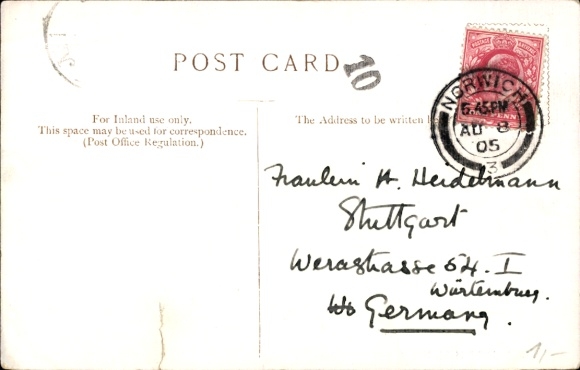 POST CARD
10
For Inland use only.
This space may be used for correspondence.
(Post Office Regulation.)
The Address to be written he
POSTAGE
PENNY
NORWICH
5.45PM
AU 8
05
3
Fraulein A. Heidelmann
Stuttgart
Werastrasse 54. I
Würtemburg.
Germany.
1,-